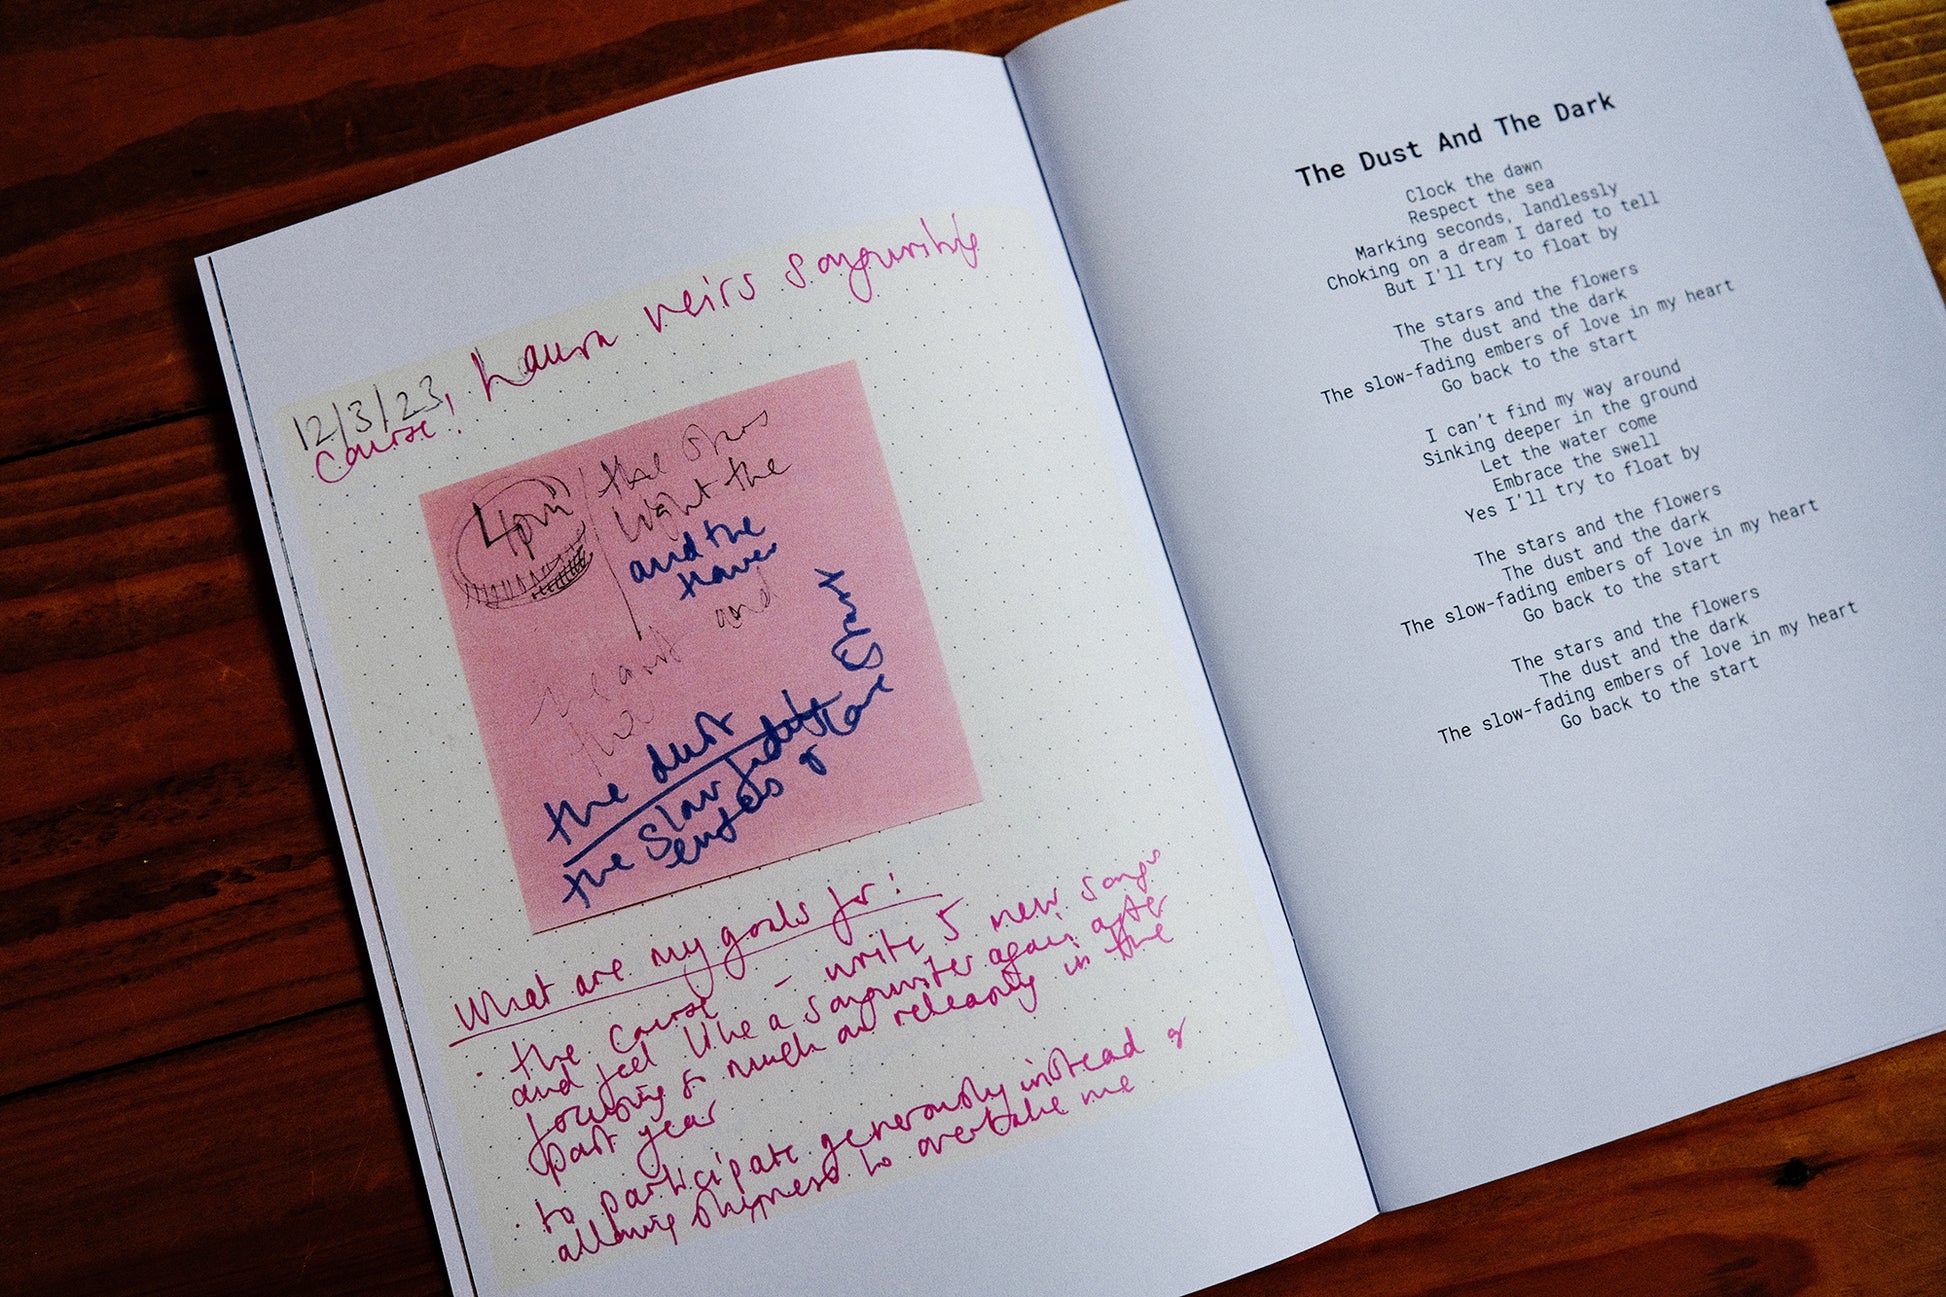 12/3/23, Laura veirs songwriting
course!
4pm
the
light the
and the
and
the
the dust
the slow
embers of love
What are my goals for:
. the course – write 5 new songs
and feel like a songwriter again after
focusing so much on releasing in the
past year
. to participate generously instead of
allowing shyness to overtake me
The Dust And The Dark
Clock the dawn
Respect the sea
Marking seconds, landlessly
Choking on a dream I dared to tell
But I'll try to float by
The stars and the flowers
The dust and the dark
The slow-fading embers of love in my heart
Go back to the start
I can't find my way around
Sinking deeper in the ground
Let the water come
Embrace the swell
Yes I'll try to float by
The stars and the flowers
The dust and the dark
The slow-fading embers of love in my heart
Go back to the start
The stars and the flowers
The dust and the dark
The slow-fading embers of love in my heart
Go back to the start